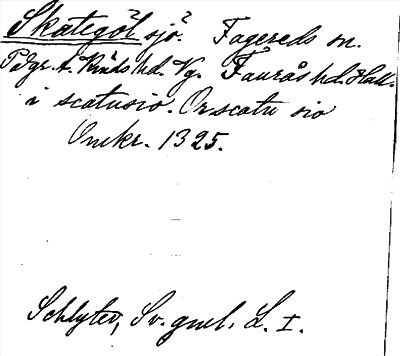 Skategöl sjö? Fagereds sn.
På gr. t. Kinds hd. Vg. Faurås hd. Hall.
i scatusio. Or scatu sio
Omkr. 1325.
Schlyter, Sv. gml. L. I.